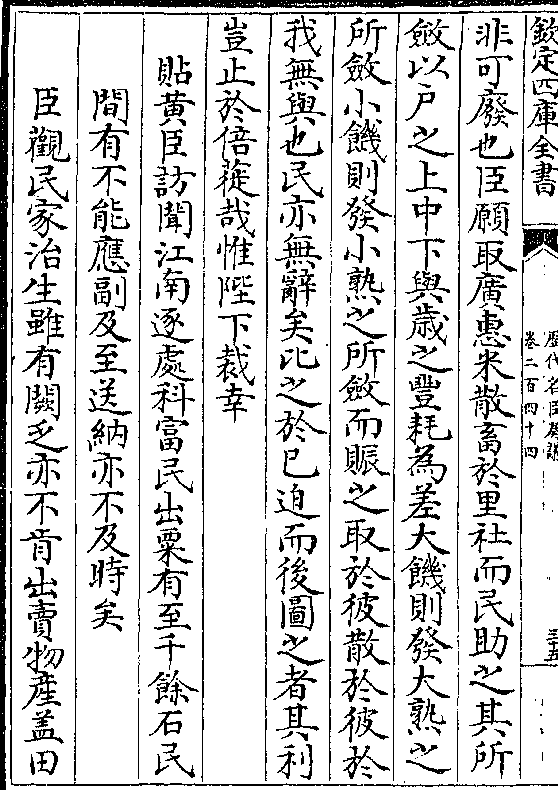 欽定四庫全書
歷代名臣奏議
卷二百四十四
三十五
非可廢也臣願取廣惠米散畜於里社而民助之其所
斂以戶之上中下與歲之豐耗為差大饑則發大熟之
所斂小饑則發小熟之所斂而賑之取於彼散於彼於
我無與也民亦無辭矣比之於已迫而後圖之者其利
豈止於倍蓰哉惟陛下裁幸
貼黃臣訪聞江南逐處科富民出粟有至千餘石民
間有不能應副及至送納亦不及時矣
臣觀民家治生雖有闕乏亦不肯出賣物產盖田